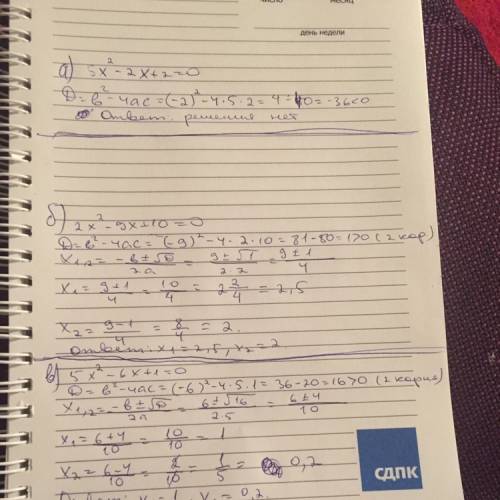 число месяц
день недели
а) 5x² - 2x + 2 = 0
D = b² - 4ac = (-2)² - 4·5·2 = 4 - 40 = -36 < 0
Ответ: решения нет
б) 2x² - 9x + 10 = 0
D = b² - 4ac = (-9)² - 4·2·10 = 81 - 80 = 1 > 0 (2 кор)
x₁,₂ = (-b ± √D)/2a = (9 ± √1)/2·2 = (9 ± 1)/4
x₁ = (9+1)/4 = 10/4 = 2 2/4 = 2,5
x₂ = (9-1)/4 = 8/4 = 2.
Ответ: x₁ = 2,5, x₂ = 2
в) 5x² - 6x + 1 = 0
D = b² - 4ac = (-6)² - 4·5·1 = 36 - 20 = 16 > 0 (2 корня)
x₁,₂ = (-b ± √D)/2a = (6 ± √16)/2·5 = (6 ± 4)/10
x₁ = (6+4)/10 = 10/10 = 1
x₂ = (6-4)/10 = 2/10 = 1/5 = 0,2
Ответ: x₁ = 1, x₂ = 0,2.
СДПК